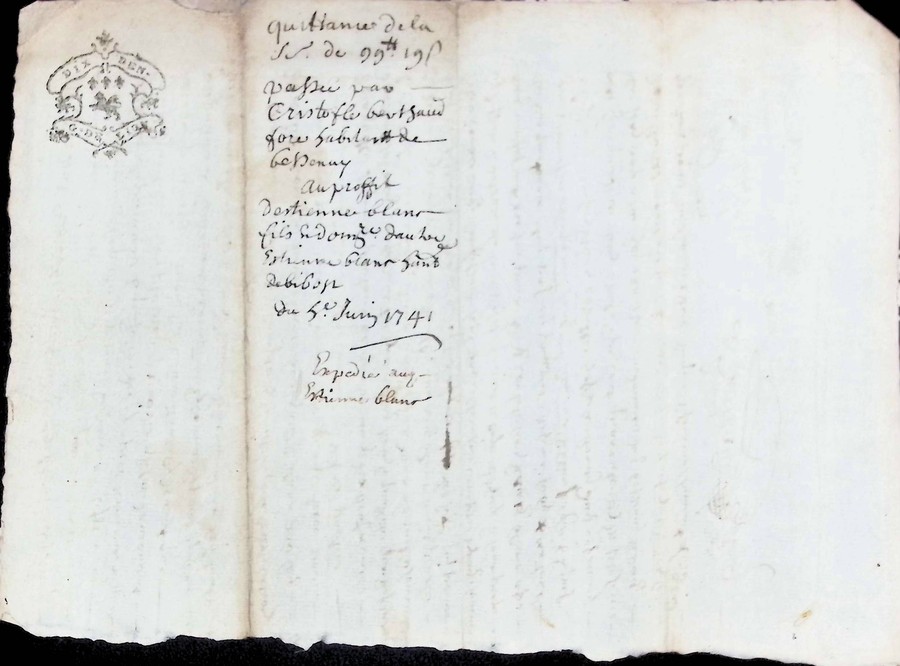 DIX DEN.
G. DE LYON
quittance de la
Se. de 99tt 19s
passée par
Cristofle berthaud
fore habitant de
bessenay
au proffit
destienne blanc
fils & donre. dautre
Estienne blanc hant
de bibost
du 5e. Juin 1741
Expedié auq
Estienne blanc